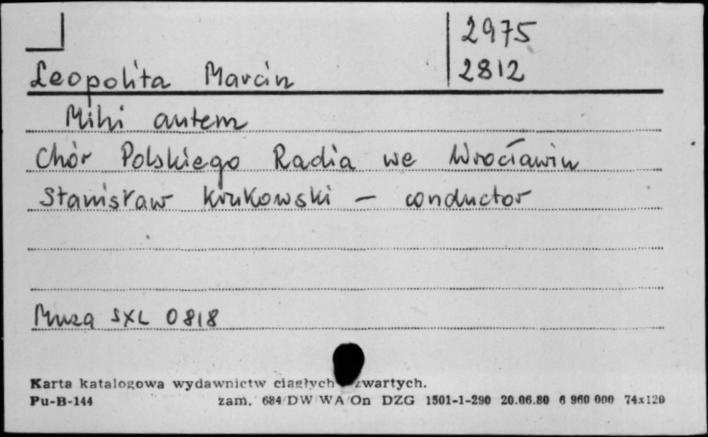 2975
2812
Leopolita Marcin
Mihi autem
Chór Polskiego Radia we Wrocławiu
Stanisław Krukowski – conductor
Muza SXL 0818
Karta katalogowa wydawnictw ciągłych zwartych.
Pu-B-144 zam. 684/DW WA/On DZG 1501-1-290 20.06.80 6 960 000 74x120